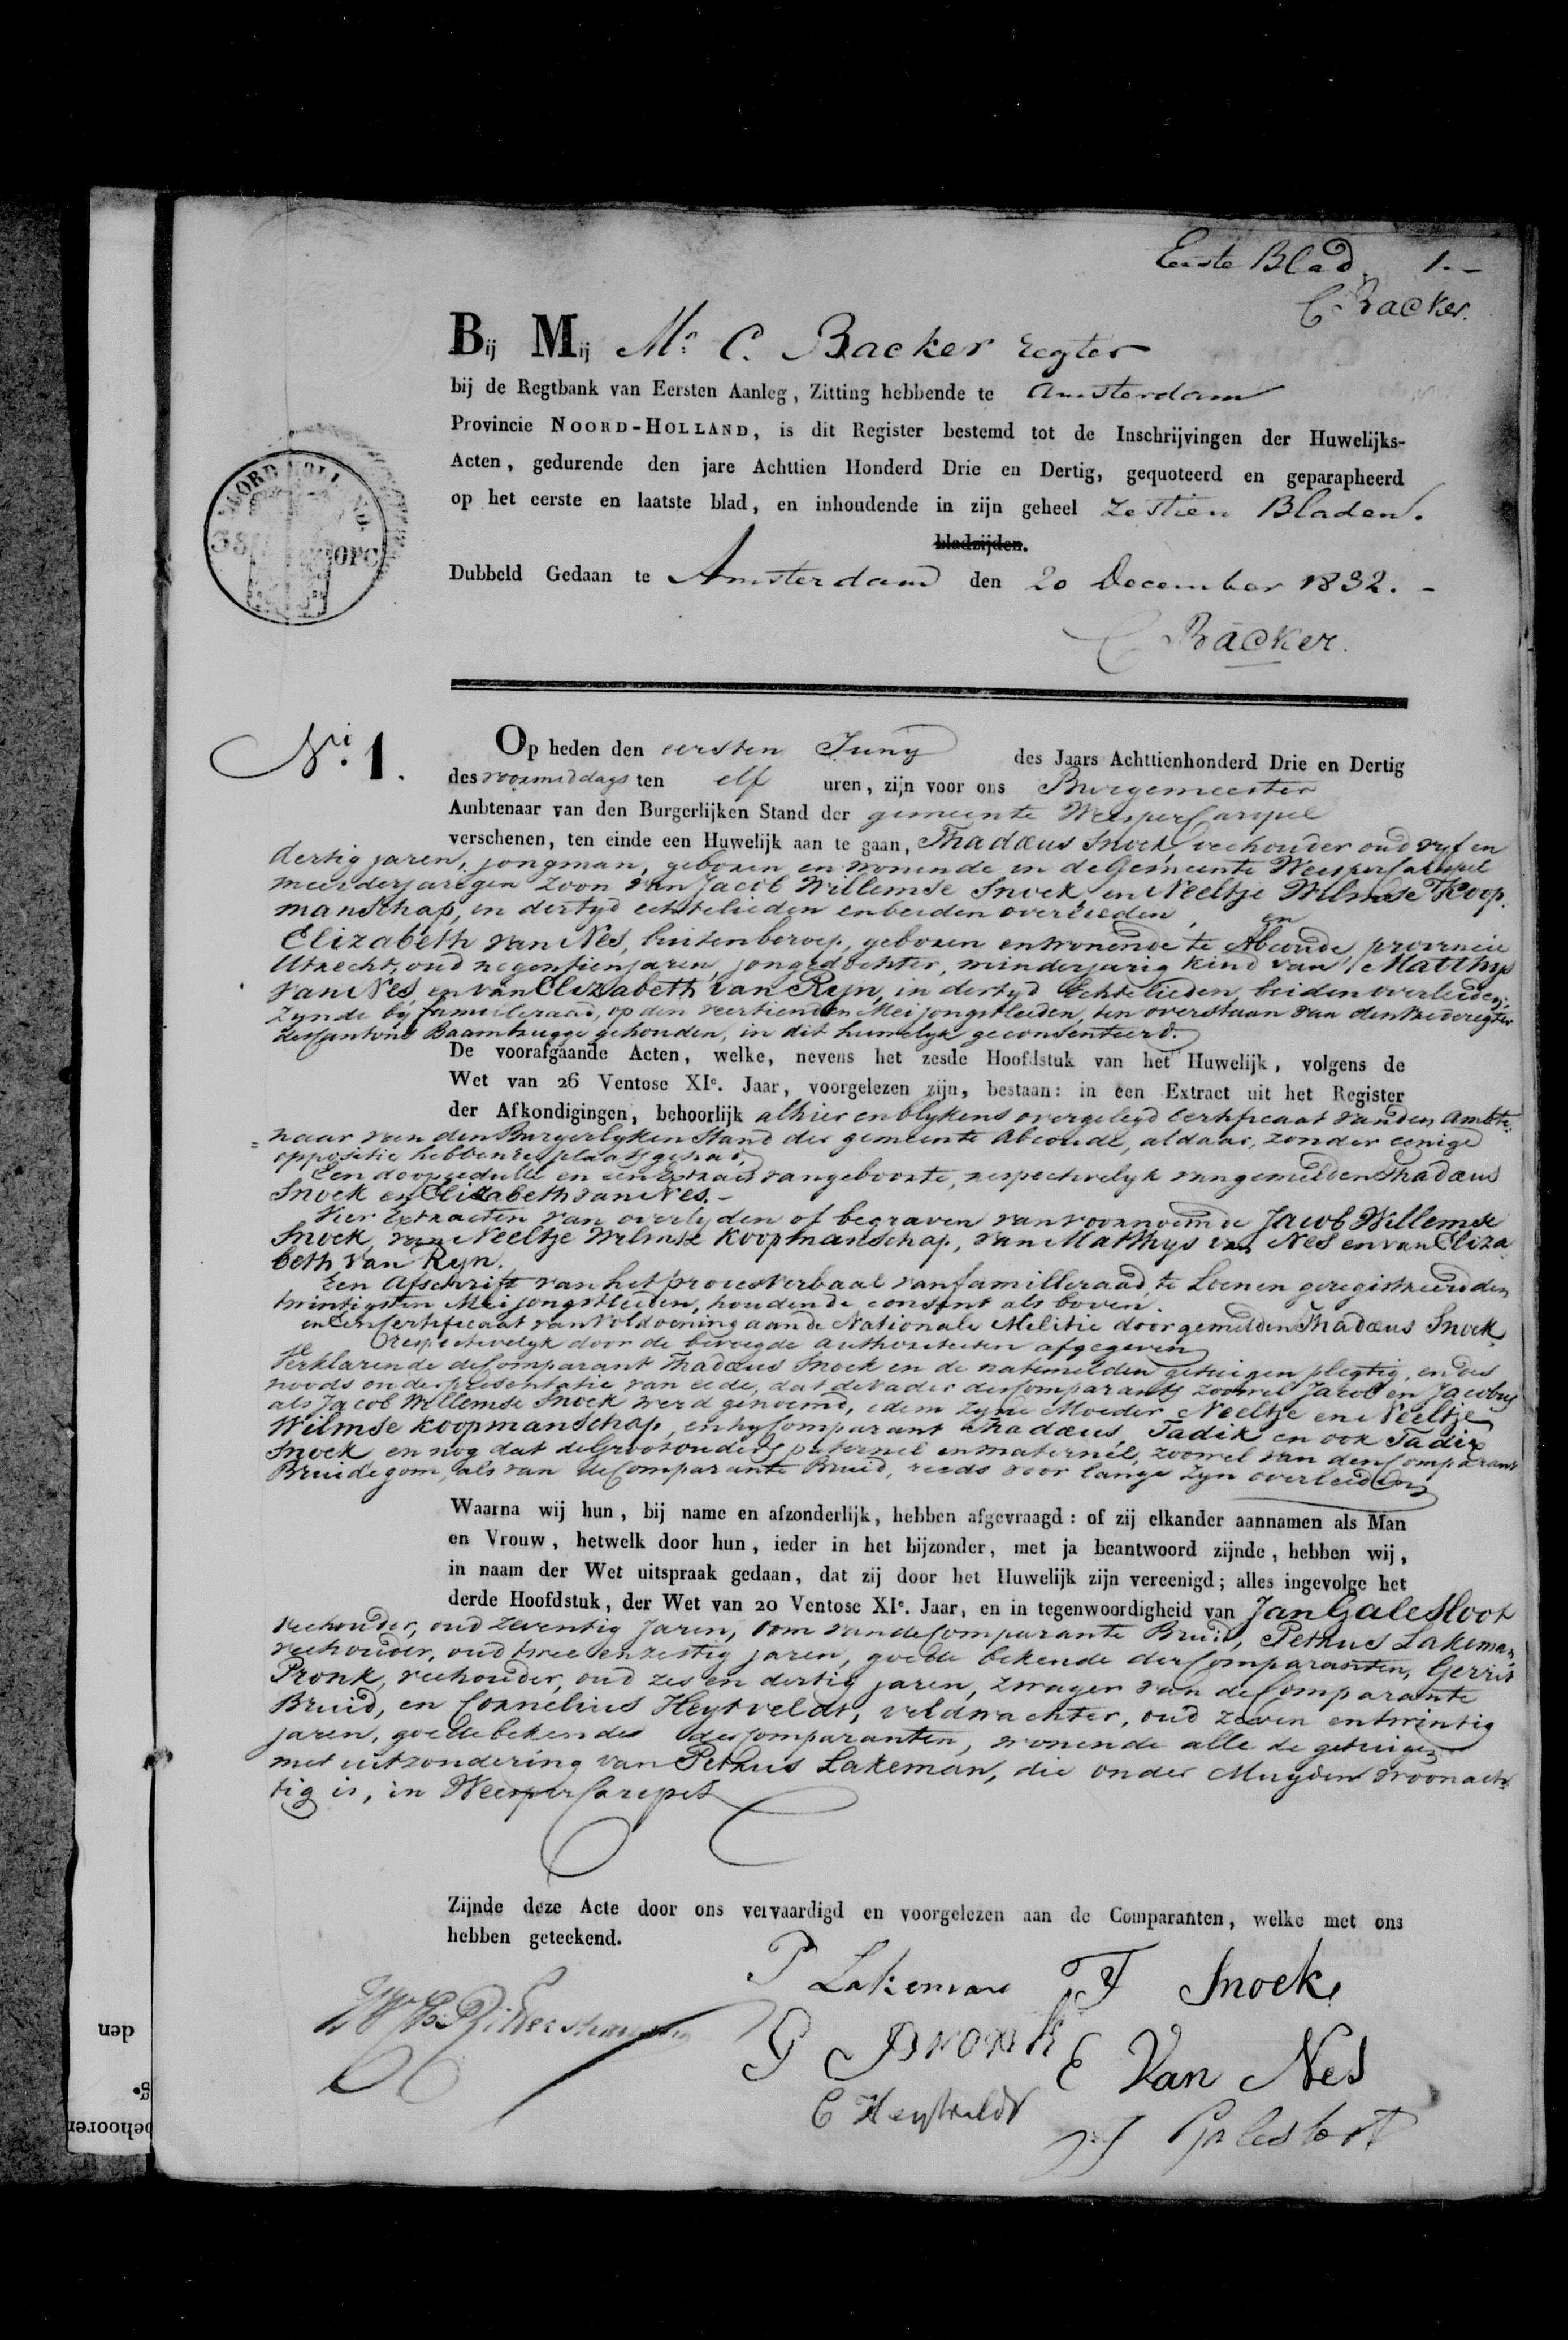 Eerste Blad. 1.-
C Backer.
Bij Mij Mr. C. Backer regter
bij de Regtbank van Eersten Aanleg, Zitting hebbende te Amsterdam
Provincie NOORD-HOLLAND, is dit Register bestemd tot de Inschrijvingen der Huwelijks-
Acten, gedurende den jare Achttien Honderd Drie en Dertig, gequoteerd en geparapheerd
op het eerste en laatste blad, en inhoudende in zijn geheel zestien Bladen.
bladzijden.
Dubbeld Gedaan te Amsterdam den 20 December 1832. -
C Backer.
NOORD HOLLAND.
OPC
No. 1.
Op heden den eersten Juny des Jaars Achttienhonderd Drie en Dertig
des voormiddags ten elf uren, zijn voor ons Burgemeester
Ambtenaar van den Burgerlijken Stand der gemeente WeesperCarspel
verschenen, ten einde een Huwelijk aan te gaan, Thadæus Snoek, veehouder oud vyf en
dertig jaren, jongman, geboren en wonende in de Gemeente WeesperCarspel
meerderjarigen zoon van Jacob Willemse Snoek, en Neeltje Wilmse Koop.
manschap, in dertyd echtelieden en beiden overleeden, en
Elizabeth van Nes, buiten beroep, geboren en wonende te Abcoude, provincie
Utrecht, oud negentien jaren, jongedochter, minderjarig kind van Matthys
van Nes, en van Elizabeth van Ryn, in dertyd Echtelieden, beiden overleeden;
zynde by familieraad, op den veertienden Mei jongstleden, ten overstaan van den Vrederegter
des Cantons Baambrugge gehouden, in dit huwelyk geconsenteerd.
De voorafgaande Acten, welke, nevens het zesde Hoofdstuk van het Huwelijk, volgens de
Wet van 26 Ventose XIe. Jaar, voorgelezen zijn, bestaan: in een Extract uit het Register
der Afkondigingen, behoorlijk alhier en blykens overgelegd Certificaat van den Ambte-
=naar van den Burgerlyken Stand der gemeente Abcoude, aldaar, zonder eenige
oppositie hebbende plaats gehad,
Een doopcedulle en een Extract van geboorte, respectivelyk van gemelden Thadæus
Snoek en Elizabeth van Nes.-
Vier Extracten van overlyden of begraven van voornoemde Jacob Willemse
Snoek, van Neeltje Wilmse Koopmanschap, van Matthys van Nes en van Eliza
beth van Ryn.
Een Afschrift van het procesverbaal van familieraad, te Loenen geregistreerd den
twintigsten Mei jongstleden, houdende consent als boven.
en Een Certificaat van Voldoening aan de Nationale Militie door gemelden Thadæus Snoek
respectivelyk door de bevoegde authoriteiten afgegeven
Verklarende de Comparant Thadæus Snoek en de natemelden getuigen plegtig, en des
noods onder presentatie van eede, dat de Vader des Comparants zoowel Jacob en Jacobus
als Jacob Willemse Snoek werd genoemd, idem zyne Moeder Neeltje en Neeltje
Wilmse Koopmanschap, en hy Comparant Thadæus, Tadik en ook Tadix
Snoek en nog dat de Grootouders paternel en maternel, zoowel van den Comparant
Bruidegom, als van de Comparante Bruid, reeds voor lange zyn overleeden
Waarna wij hun, bij name en afzonderlijk, hebben afgevraagd: of zij elkander aannamen als Man
en Vrouw, hetwelk door hun, ieder in het bijzonder, met ja beantwoord zijnde, hebben wij,
in naam der Wet uitspraak gedaan, dat zij door het Huwelijk zijn vereenigd; alles ingevolge het
derde Hoofdstuk, der Wet van 20 Ventose XIe. Jaar, en in tegenwoordigheid van Jan Galesloot
veehouder, oud zeventig Jaren, Oom van de Comparante Bruid, Petrus Lakeman,
veehouder, oud twee en zestig jaren, goede bekende der Comparanten, Gerrit
Pronk, veehouder, oud zes en dertig jaren, zwager van de Comparante
Bruid, en Cornelius Heytveldt, veldwachter, oud zeven en twintig
jaren, goede bekende des Comparanten, wonende alle de getuigen
met uitzondering van Petrus Lakeman, die onder Muyden woonach-
tig is, in WeesperCarspel
Zijnde deze Acte door ons vervaardigd en voorgelezen aan de Comparanten, welke met ons
hebben geteekend.
P Lakeman T Snoek
G Pronk E Van Nes
C Heytveldt J Galesloot
den
ge
behooren